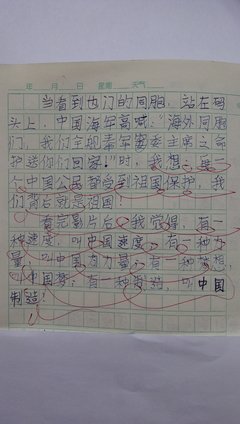 年 月 日 星期 天气
当看到也门的同胞，站在码
头上，中国海军高喊：“海外同胞
们，我们主席奉军委主席之命
护送你们回家。”时，我想：每一
个中国公民都受到祖国保护，我
们背后就是祖国！
看完影片后，我觉得，有一
种速度，叫中国速度，有一种力
量，叫中国力量，有一种梦想，
叫中国梦，有一种制造，叫中国
制造！